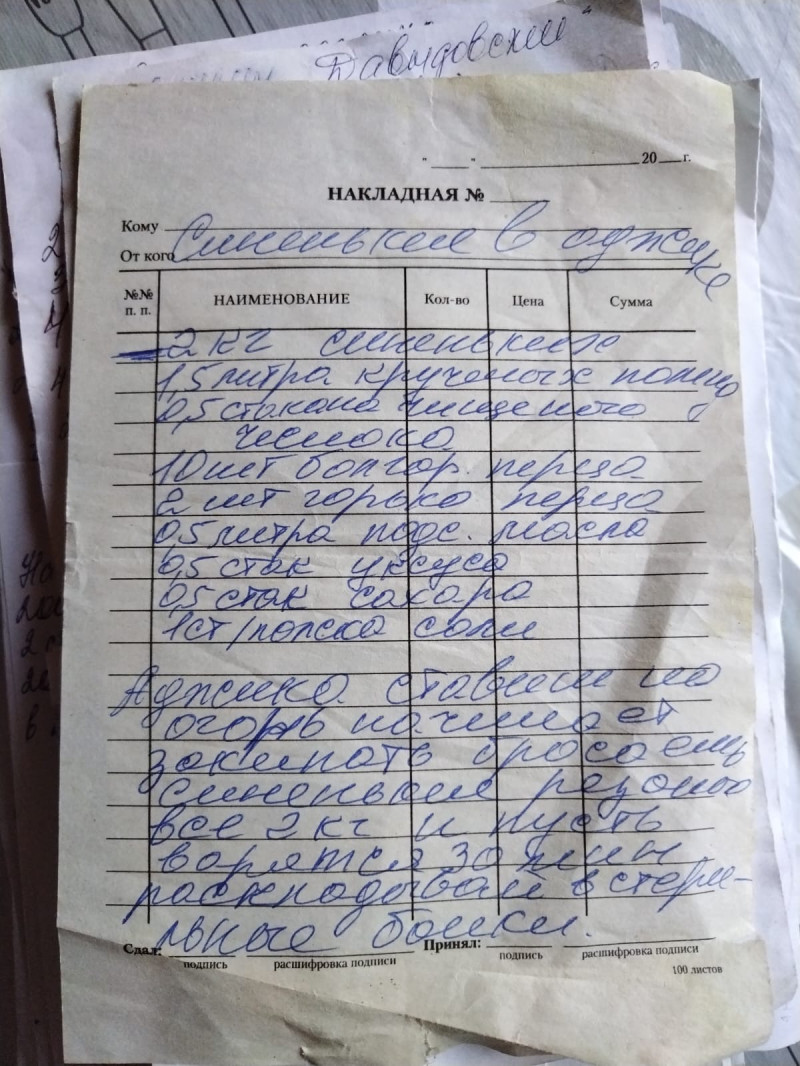 Давыдовский"
" ____ " ____________ 20 __ г.
НАКЛАДНАЯ № ____
Кому
От кого Синенькие в аджике
№№ п. п. НАИМЕНОВАНИЕ Кол-во Цена Сумма
2 кг синеньких
1,5 литра крученых помид
0,5 стакана чищеного
чеснока
10 шт болгар. перца
2 шт горько перца
0,5 литра подс. масла
0,5 стак уксуса
0,5 стак сахара
1 ст/ложка соли
Аджика ставим на
огонь начинает
закипать бросаешь
синенькие резаные
все 2 кг и пусть
варятся 30 мин
раскладывай в стери-
льные банки.
Сдал: Принял:
подпись расшифровка подписи подпись расшифровка подписи
100 листов